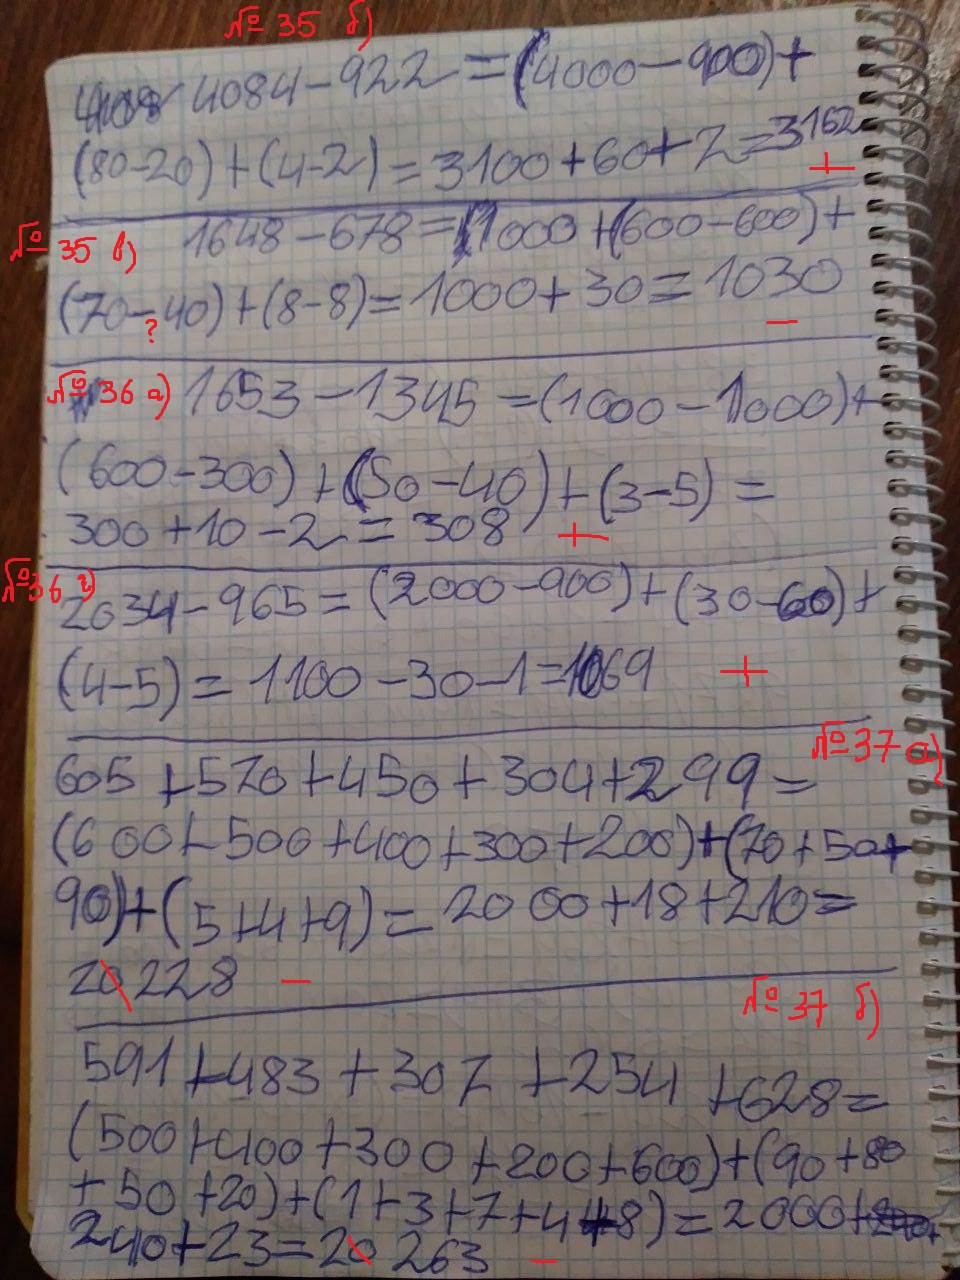 № 35 б)
4084-922=(4000-900)+
(80-20)+(4-2)=3100+60+2=3162
+
№ 35 в) 1648-678=1000+(600-600)+
(70-40)+(8-8)=1000+30=1030
? -
№ 36 а) 1653-1345=(1000-1000)+
(600-300)+(50-40)+(3-5)=
300+10-2=308 +
№ 36 г) 2034-965=(2000-900)+(30-60)+
(4-5)=1100-30-1=1069 +
№ 37 а)
605+570+450+304+299=
(600+500+400+300+200)+(70+50+
90)+(5+4+9)=2000+18+210=
20228 -
№ 37 б)
591+483+307+254+628=
(500+400+300+200+600)+(90+80
+50+20)+(1+3+7+4+8)=2000+
240+23=20263 -